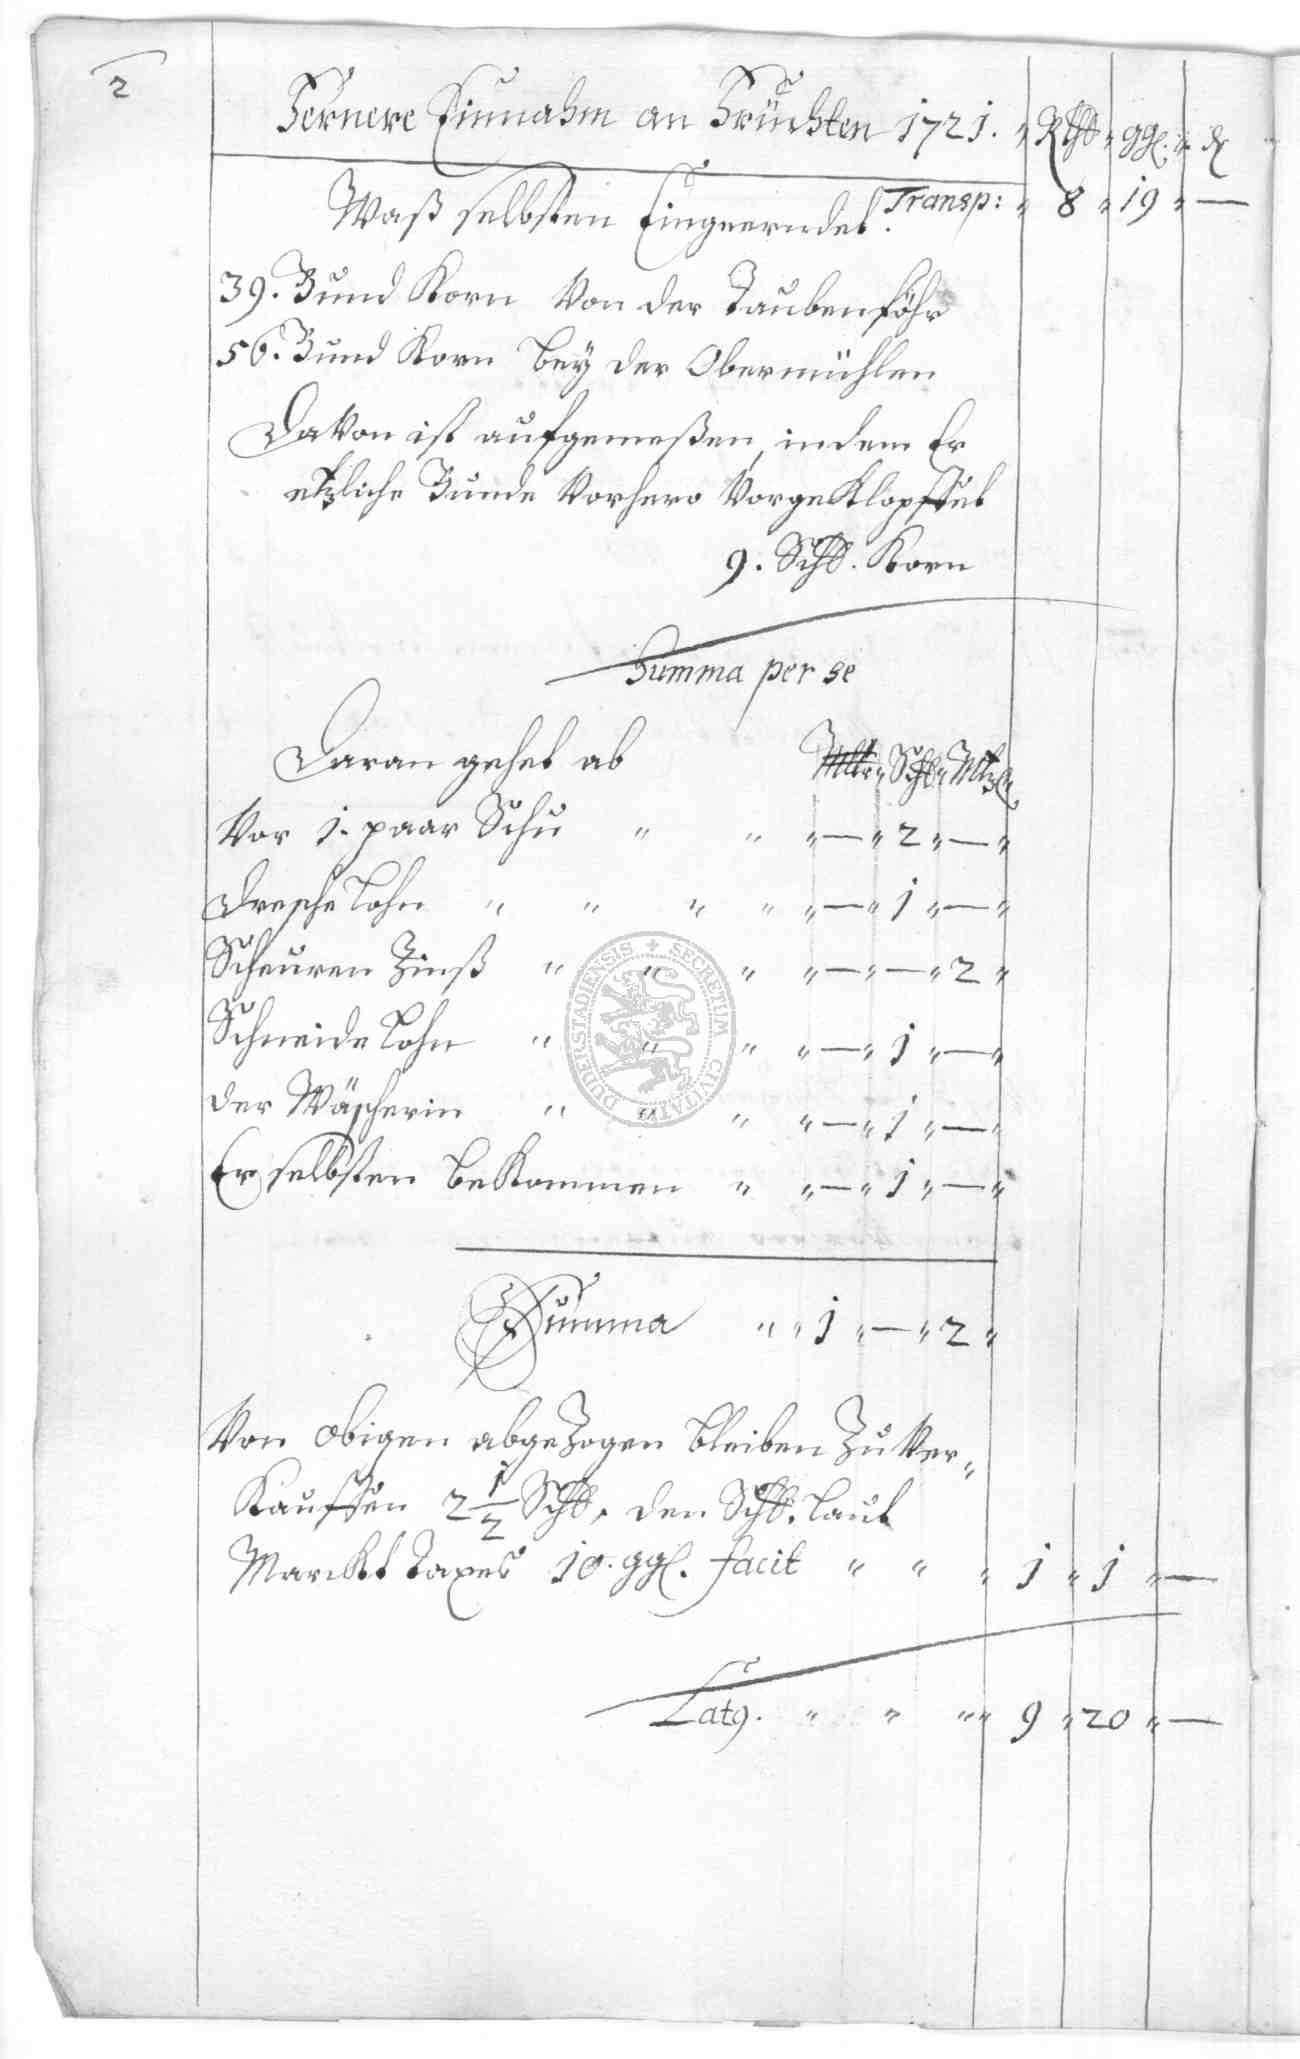 2
Fernere Einnahm an Früchten 1721. Rthl ggl. ₰
Transp: 8 19 —
Waß selbsten Eingeerndet.
39. Bund Korn Von der Taubenföhr
56. Bund Korn bey der Obermühlen
DaVon ist aufgemeßen, indem Er
etzliche Bunde Vorhero VorgeKlopffet
9. Schl. Korn
Summa per se
Daran gehet ab Mltr Schl Mtz
Vor 1. paar Schu " " " — " 2 " — "
Dresche Lohn " " " " " — " 1 " — "
Scheuren Zinß " " " " — " — " 2 "
Schneide Lohn " " " " — " 1 " — "
der Wäscherin " " " " — " 1 " — "
Er selbsten beKommen " " — " 1 " — "
Summa " " 1 " — " 2 "
Von obigen abgeZogen bleiben Zu Ver-
Kauffen 2 1/2 Schl. den Schl. laut
Marckt Taxes 10. ggl. facit " " " 1 " 1 " —
Lat9. " " " " 9 " 20 " —
DUDERSTADIENSIS + SECRETUM CIVITATIS